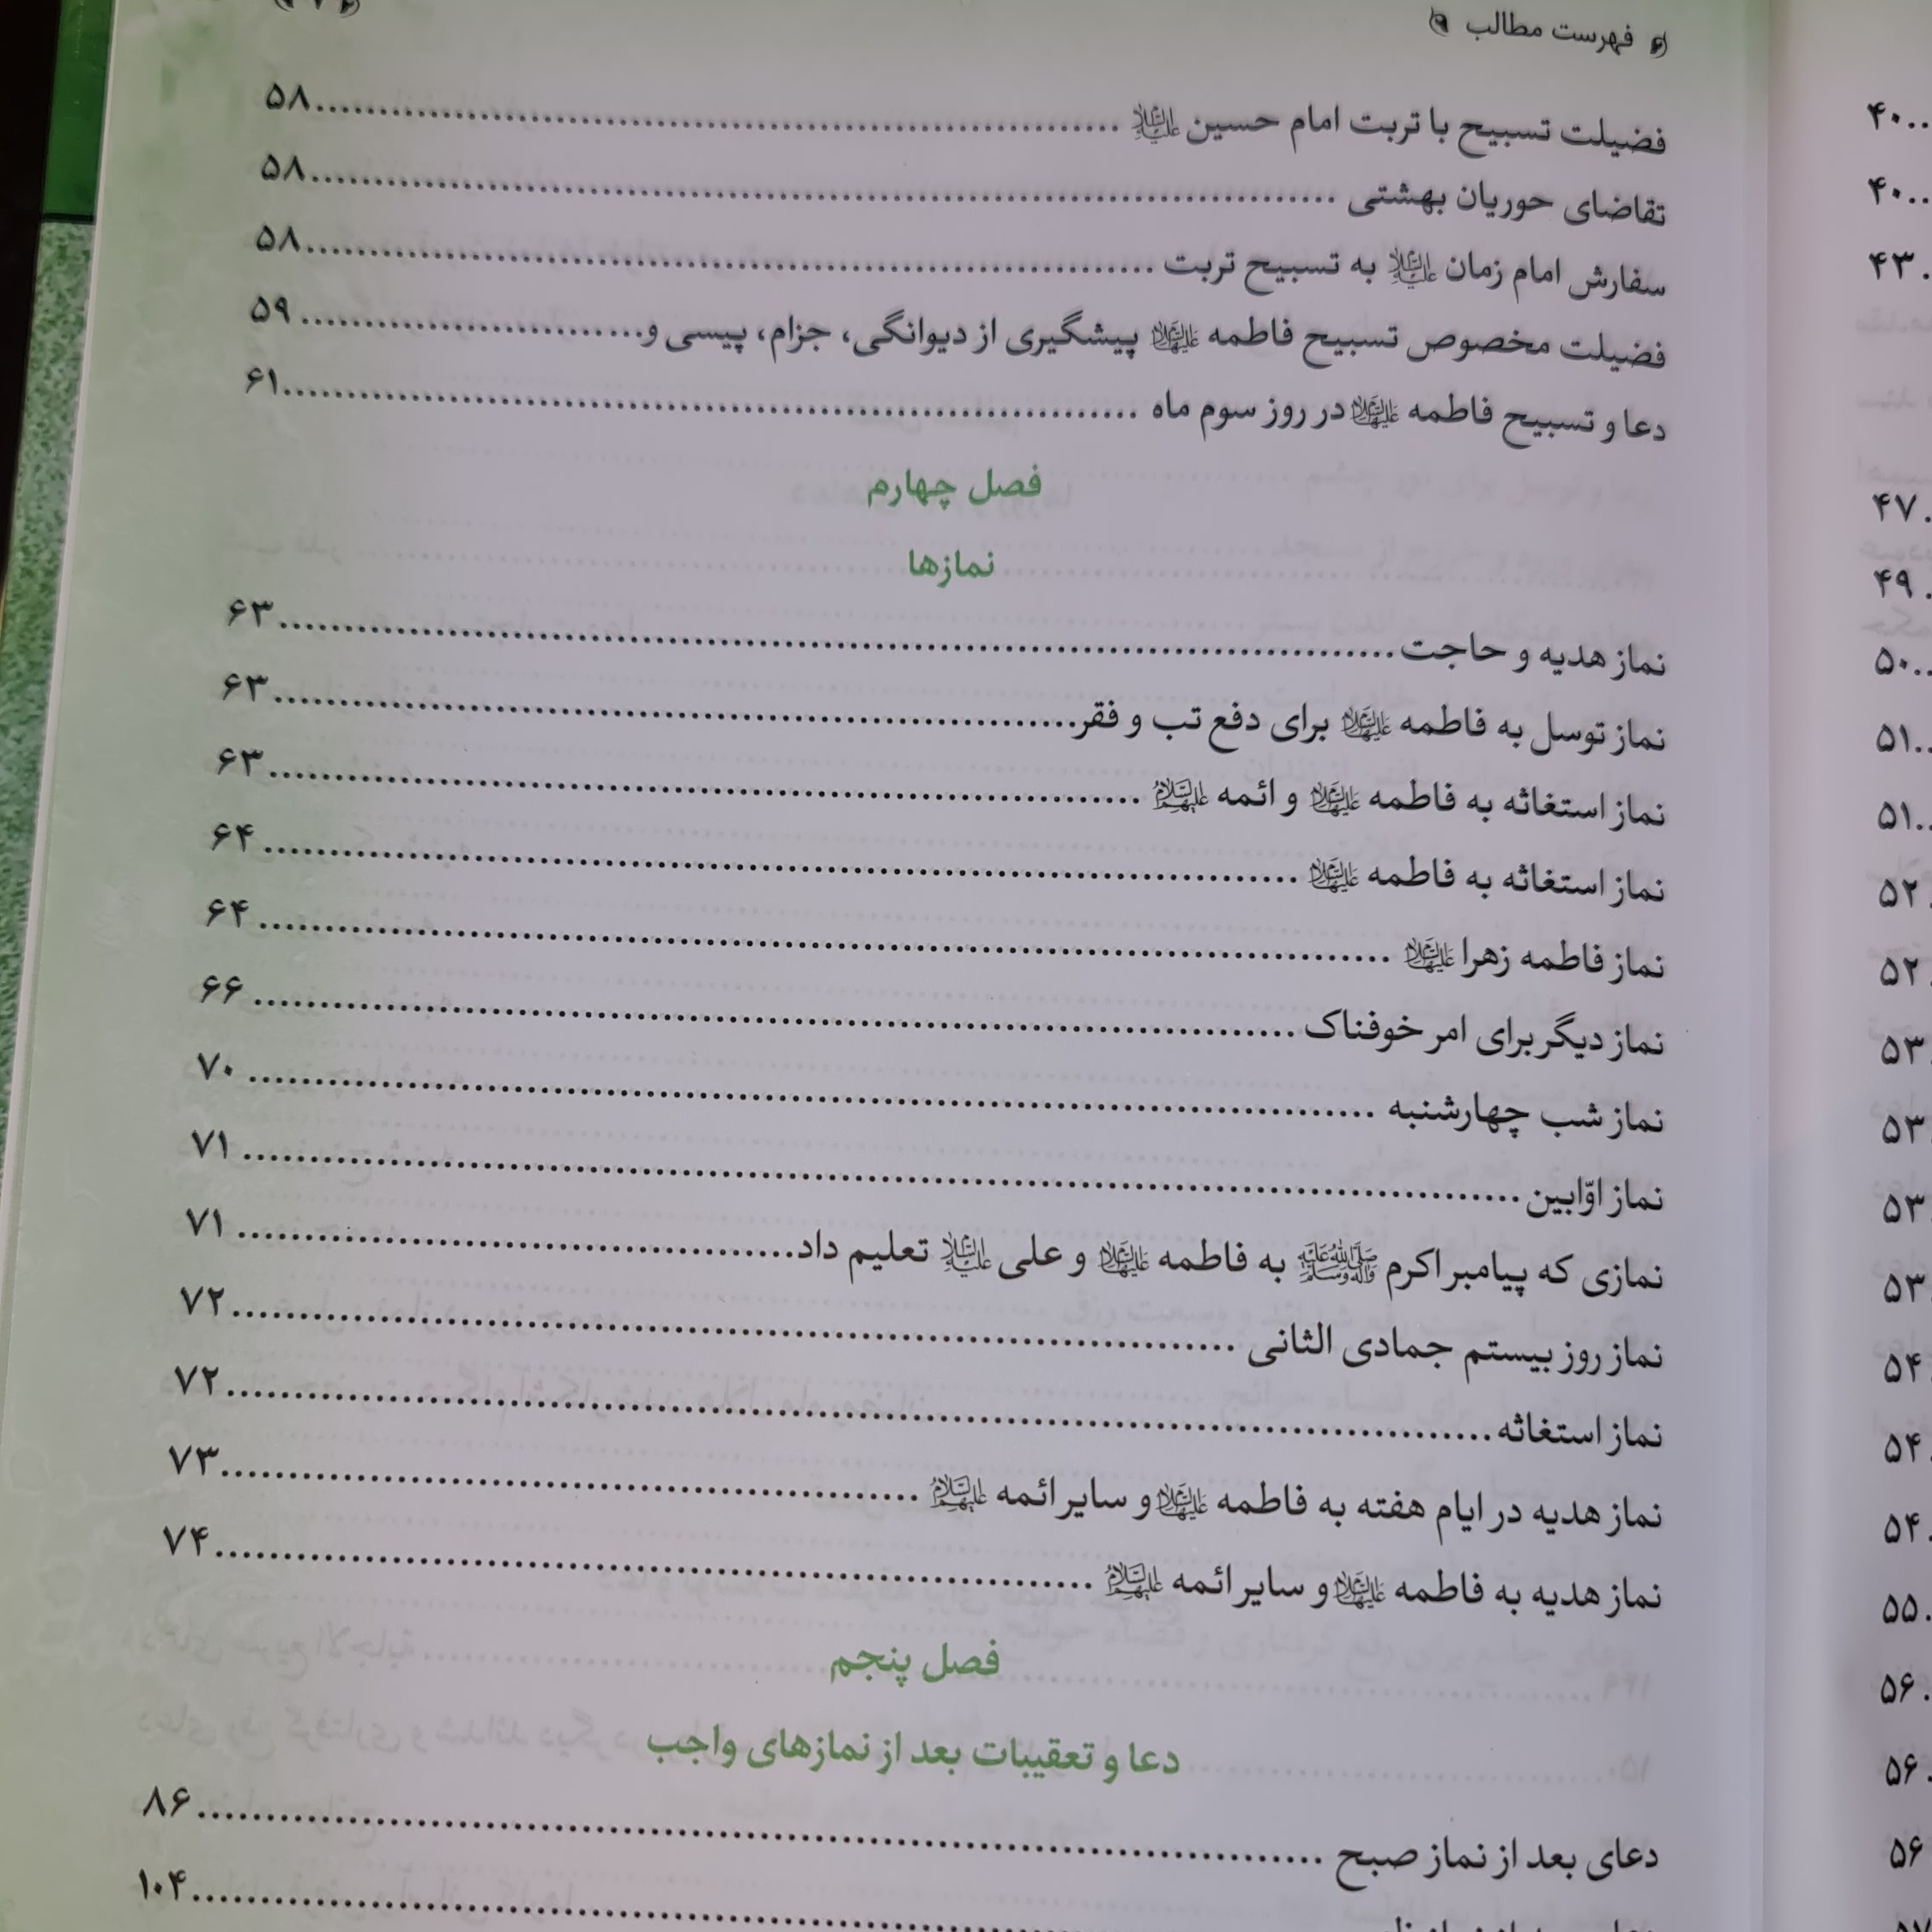 فهرست مطالب
فضیلت تسبیح با تربت امام حسین علیه‌السلام ........ ۵۸
تقاضای حوریان بهشتی ........ ۵۸
سفارش امام زمان علیه‌السلام به تسبیح تربت ........ ۵۸
فضیلت مخصوص تسبیح فاطمه علیهاالسلام پیشگیری از دیوانگی، جزام، پیسی و ........ ۵۹
دعا و تسبیح فاطمه علیهاالسلام در روز سوم ماه ........ ۶۱
فصل چهارم
نمازها
نماز هدیه و حاجت ........ ۶۳
نماز توسل به فاطمه علیهاالسلام برای دفع تب و فقر ........ ۶۳
نماز استغاثه به فاطمه علیهاالسلام و ائمه علیهم‌السلام ........ ۶۳
نماز استغاثه به فاطمه علیهاالسلام ........ ۶۴
نماز فاطمه زهرا علیهاالسلام ........ ۶۴
نماز دیگر برای امر خوفناک ........ ۶۶
نماز شب چهارشنبه ........ ۷۰
نماز اوّابین ........ ۷۱
نمازی که پیامبر اکرم صلی‌الله‌علیه‌وآله‌وسلم به فاطمه علیهاالسلام و علی علیه‌السلام تعلیم داد ........ ۷۱
نماز روز بیستم جمادی الثانی ........ ۷۲
نماز استغاثه ........ ۷۲
نماز هدیه در ایام هفته به فاطمه علیهاالسلام و سایر ائمه علیهم‌السلام ........ ۷۳
نماز هدیه به فاطمه علیهاالسلام و سایر ائمه علیهم‌السلام ........ ۷۴
فصل پنجم
دعا و تعقیبات بعد از نمازهای واجب
دعای بعد از نماز صبح ........ ۸۶
........ ۱۰۴
۴۰
۴۰
۴۳
۴۷
۴۹
۵۰
۵۱
۵۱
۵۲
۵۲
۵۳
۵۳
۵۳
۵۳
۵۴
۵۴
۵۴
۵۵
۵۶
۵۶
۵۶